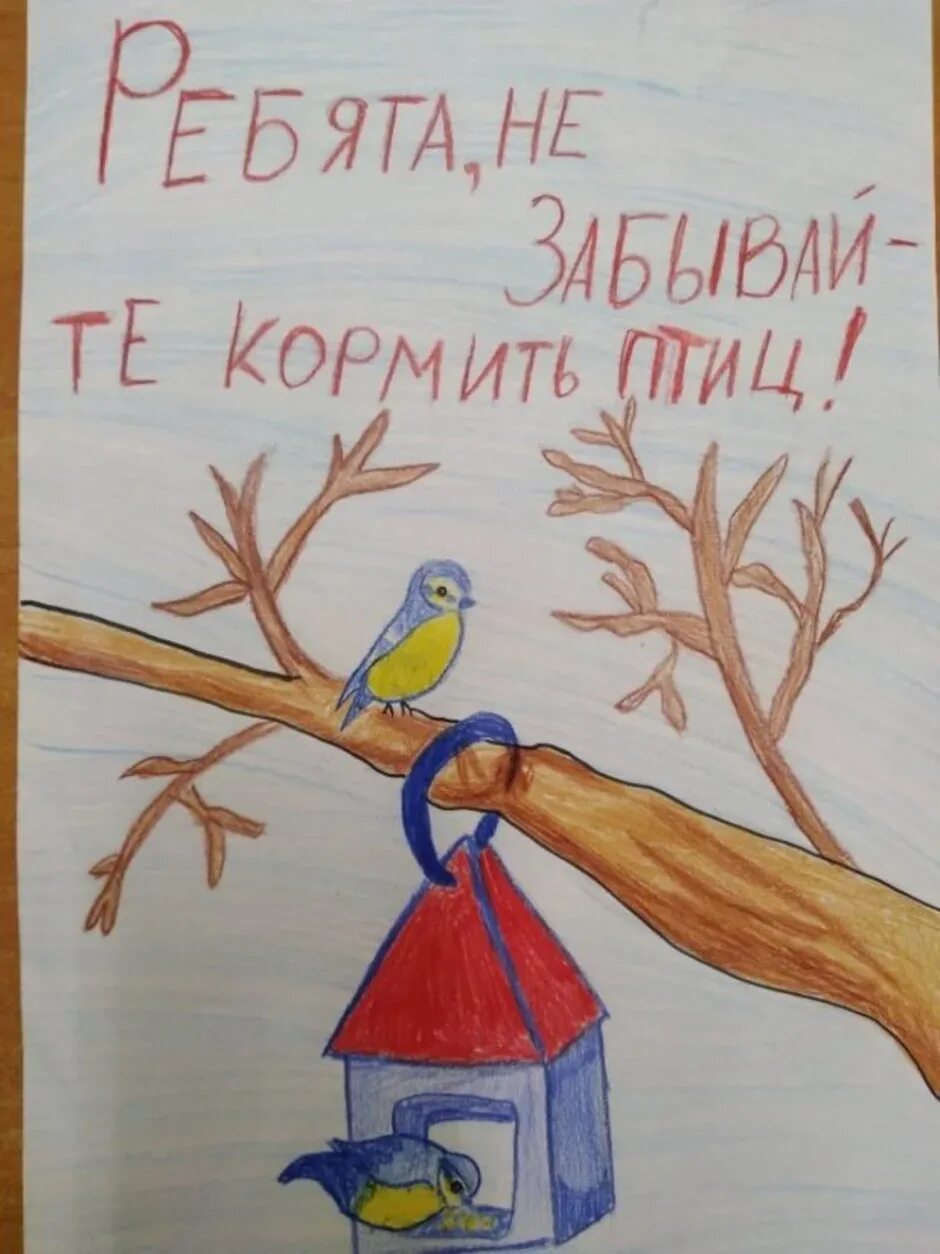 Ребята, не
забывай-
те кормить птиц!